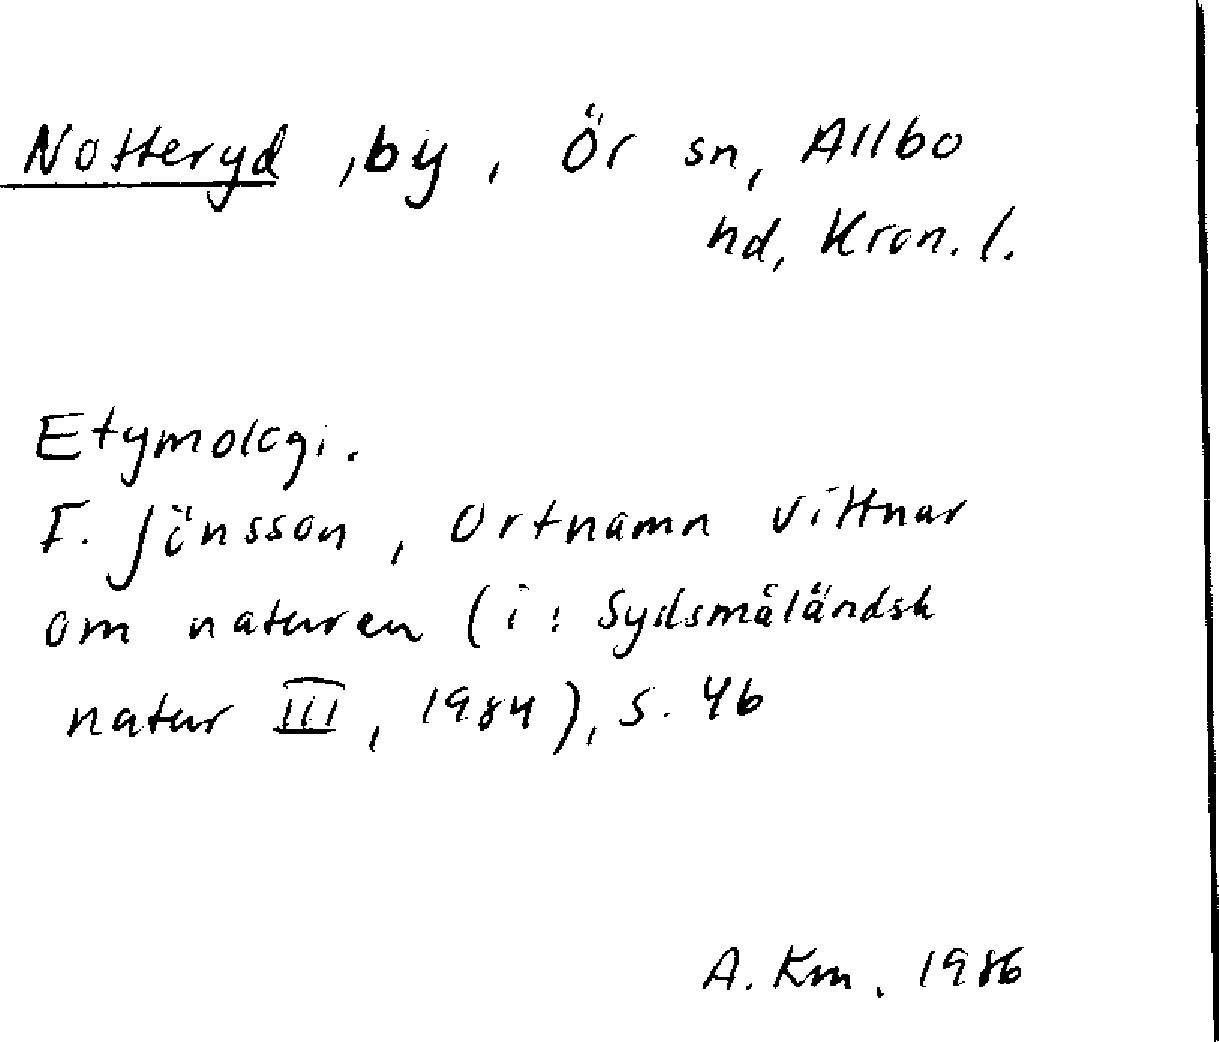 Notteryd, by, Ör sn, Allbo
hd, Kron. l.
Etymologi.
F. Jönsson, Ortnamn vittnar
om naturen (i: Sydsmåländsk
natur III, 1984), s. 46
A. Km. 1986